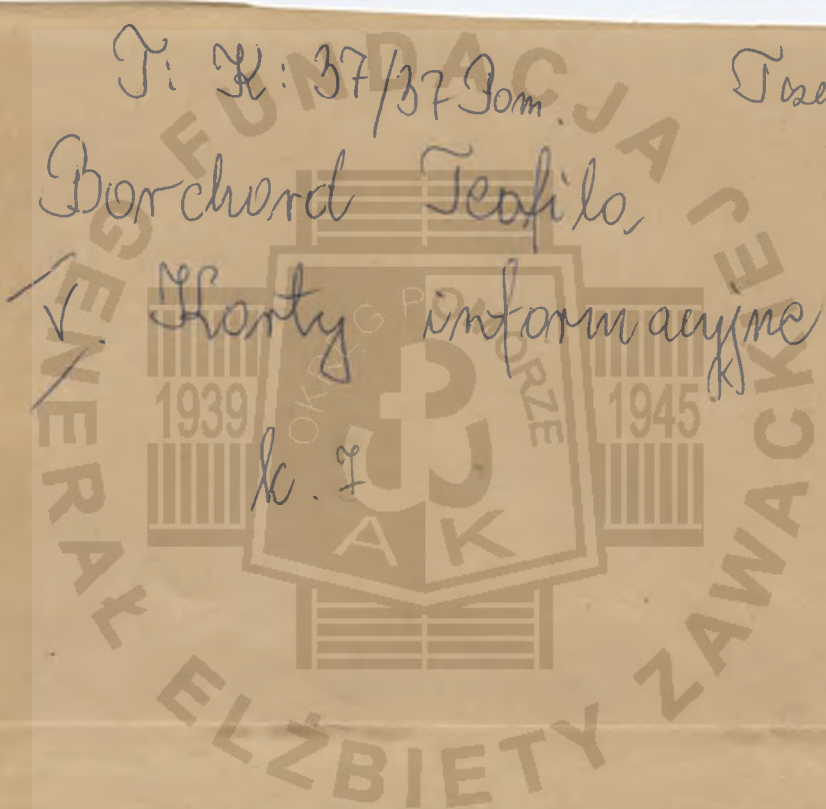 T: K: 37/37 Pom.
Borchard Teofila,
V. Karty informacyjne
k. 7
FUNDACJA GENERAŁ ELŻBIETY ZAWACKIEJ
OKRĘG POMORZE
1939 1945
AK